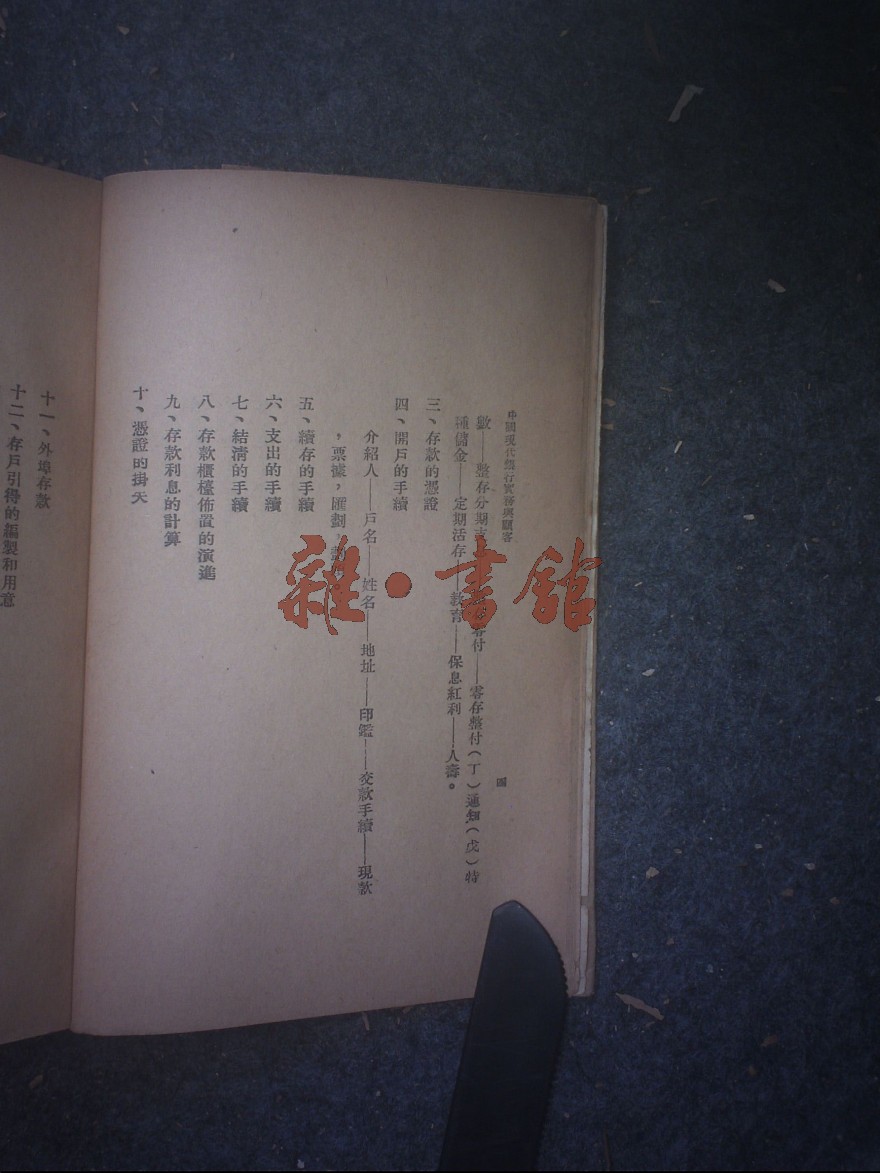 中國現代銀行實務與顧客
四
數——整存分期支 零付——零存整付（丁）通知（戊）特
種儲金——定期活存——教育——保息紅利——人壽。
三、存款的憑證
四、開戶的手續
介紹人——戶名——姓名——地址——印鑑——交款手續——現款
，票據，匯劃
五、續存的手續
六、支出的手續
七、結清的手續
八、存款櫃檯佈置的演進
九、存款利息的計算
十、憑證的掛失
十一、外埠存款
十二、存戶引得的編製和用意
雜·書館